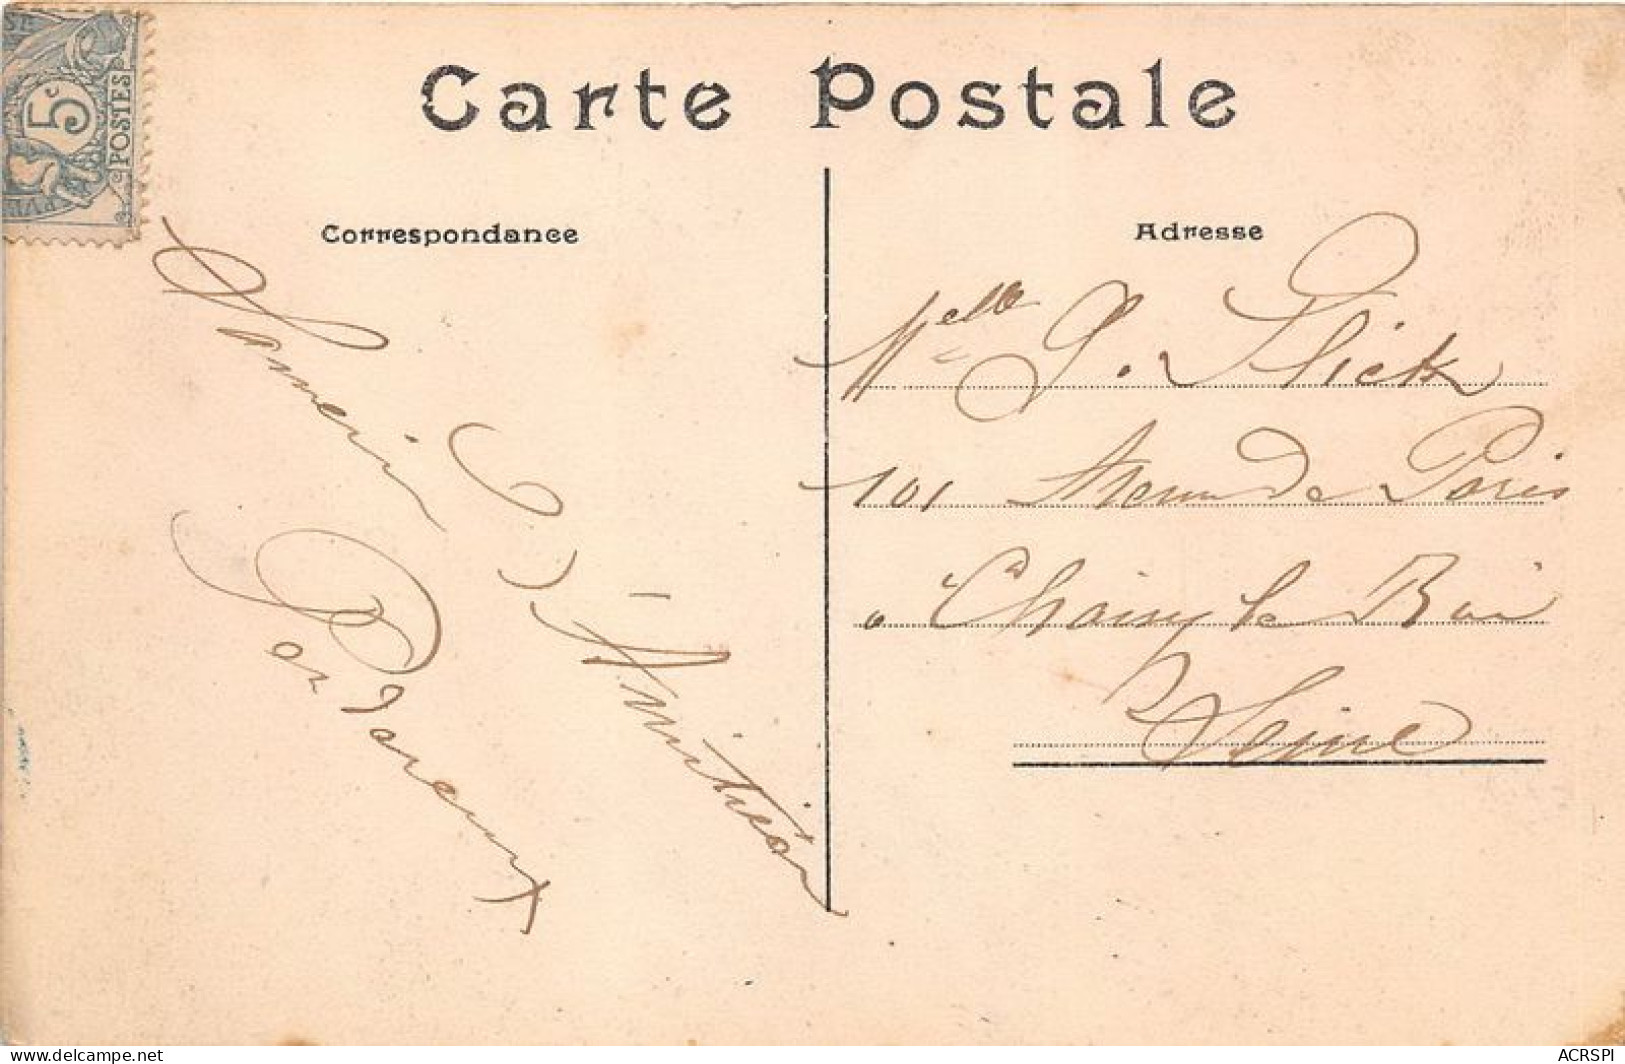 5c
POSTES
Carte Postale
Correspondance
Adresse
Melle G. Flick
101 Avenue de Paris
a Choisy le Roi
Seine
Bordeaux
www.delcampe.net
ACRSPI